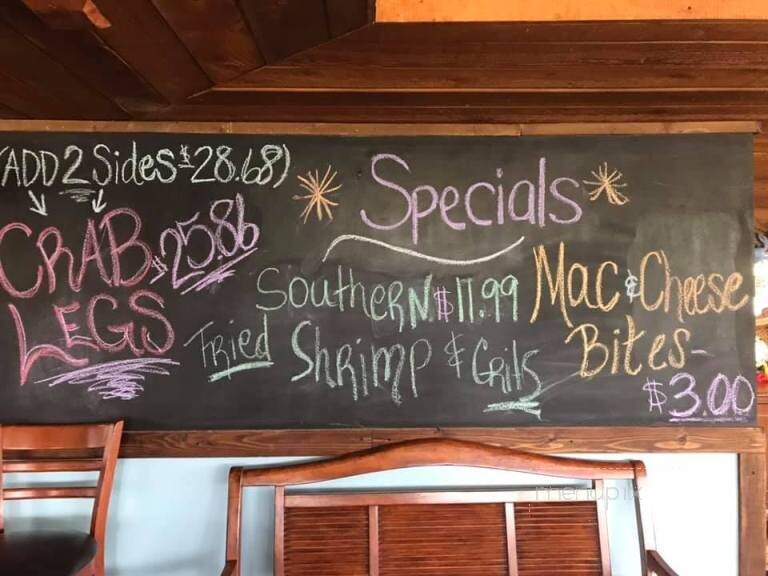 (ADD 2 Sides $28.68)
CRAB $25.86
LEGS
Specials
Southern $11.99
Fried Shrimp & Grits
Mac & Cheese
Bites -
$3.00
menupix